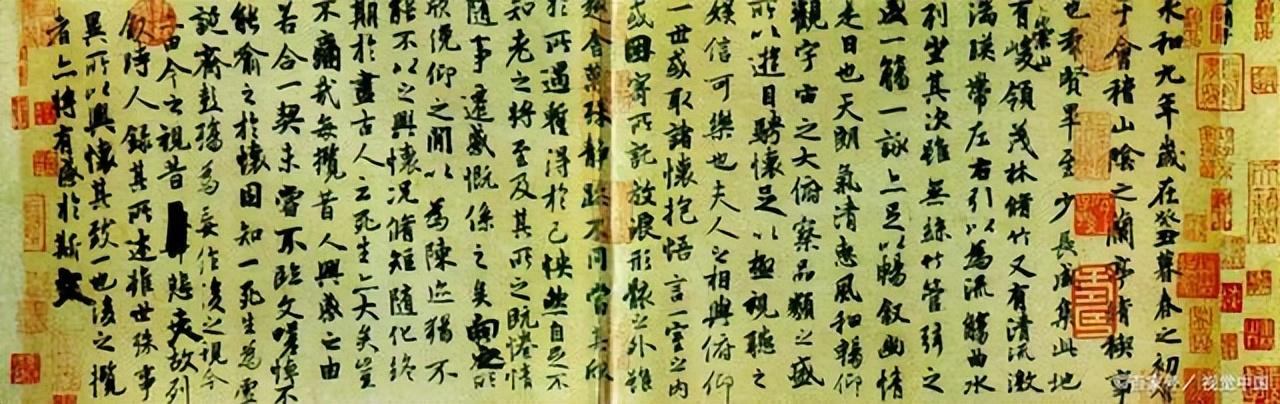 永和九年歲在癸丑暮春之初會
于會稽山陰之蘭亭脩稧事
也群賢畢至少長咸集此地
有崇山峻領茂林脩竹又有清流激
湍暎帶左右引以為流觴曲水
列坐其次雖無絲竹管弦之
盛一觴一詠亦足以暢敘幽情
是日也天朗氣清惠風和暢仰
觀宇宙之大俯察品類之盛
所以遊目騁懷足以極視聽之
娛信可樂也夫人之相與俯仰
一世或取諸懷抱悟言一室之內
或因寄所託放浪形骸之外雖
趣舍萬殊靜躁不同當其欣
於所遇暫得於己怏然自足不
知老之將至及其所之既惓情
隨事遷感慨係之矣向之所
欣俛仰之間以為陳迹猶不
能不以之興懷況脩短隨化終
期於盡古人云死生亦大矣豈
不痛哉每攬昔人興感之由
若合一契未嘗不臨文嗟悼不
能喻之於懷固知一死生為虛
誕齊彭殤為妄作後之視今
亦由今之視昔悲夫故列
敘時人錄其所述雖世殊事
異所以興懷其致一也後之攬
者亦將有感於斯文
百家号／视觉中国